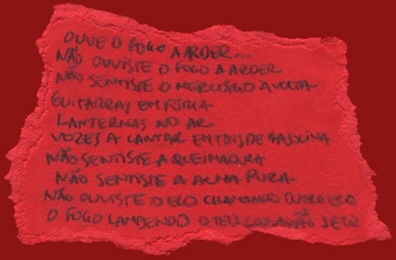 OUVE O FOGO A ARDER...
NÃO OUVISTE O FOGO A ARDER
NÃO SENTISTE O MERCÚRIO À VOLTA
GUITARRAS EM FÚRIA
LANTERNAS NO AR
VOZES A CANTAR EM TONS DE GASOLINA
NÃO SENTISTE A QUEIMADURA
NÃO SENTISTE A ALMA PURA
NÃO OUVISTE O ECO CHAMANDO OUTRO ECO
O FOGO LAMBENDO O TEU CORAÇÃO SECO